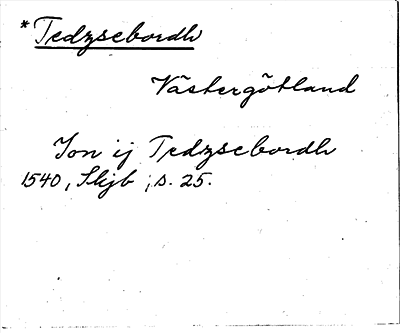 *Tedzsebordh
Västergötland
Jon ij Tedzsebordh
1540, Skjb, s. 25.